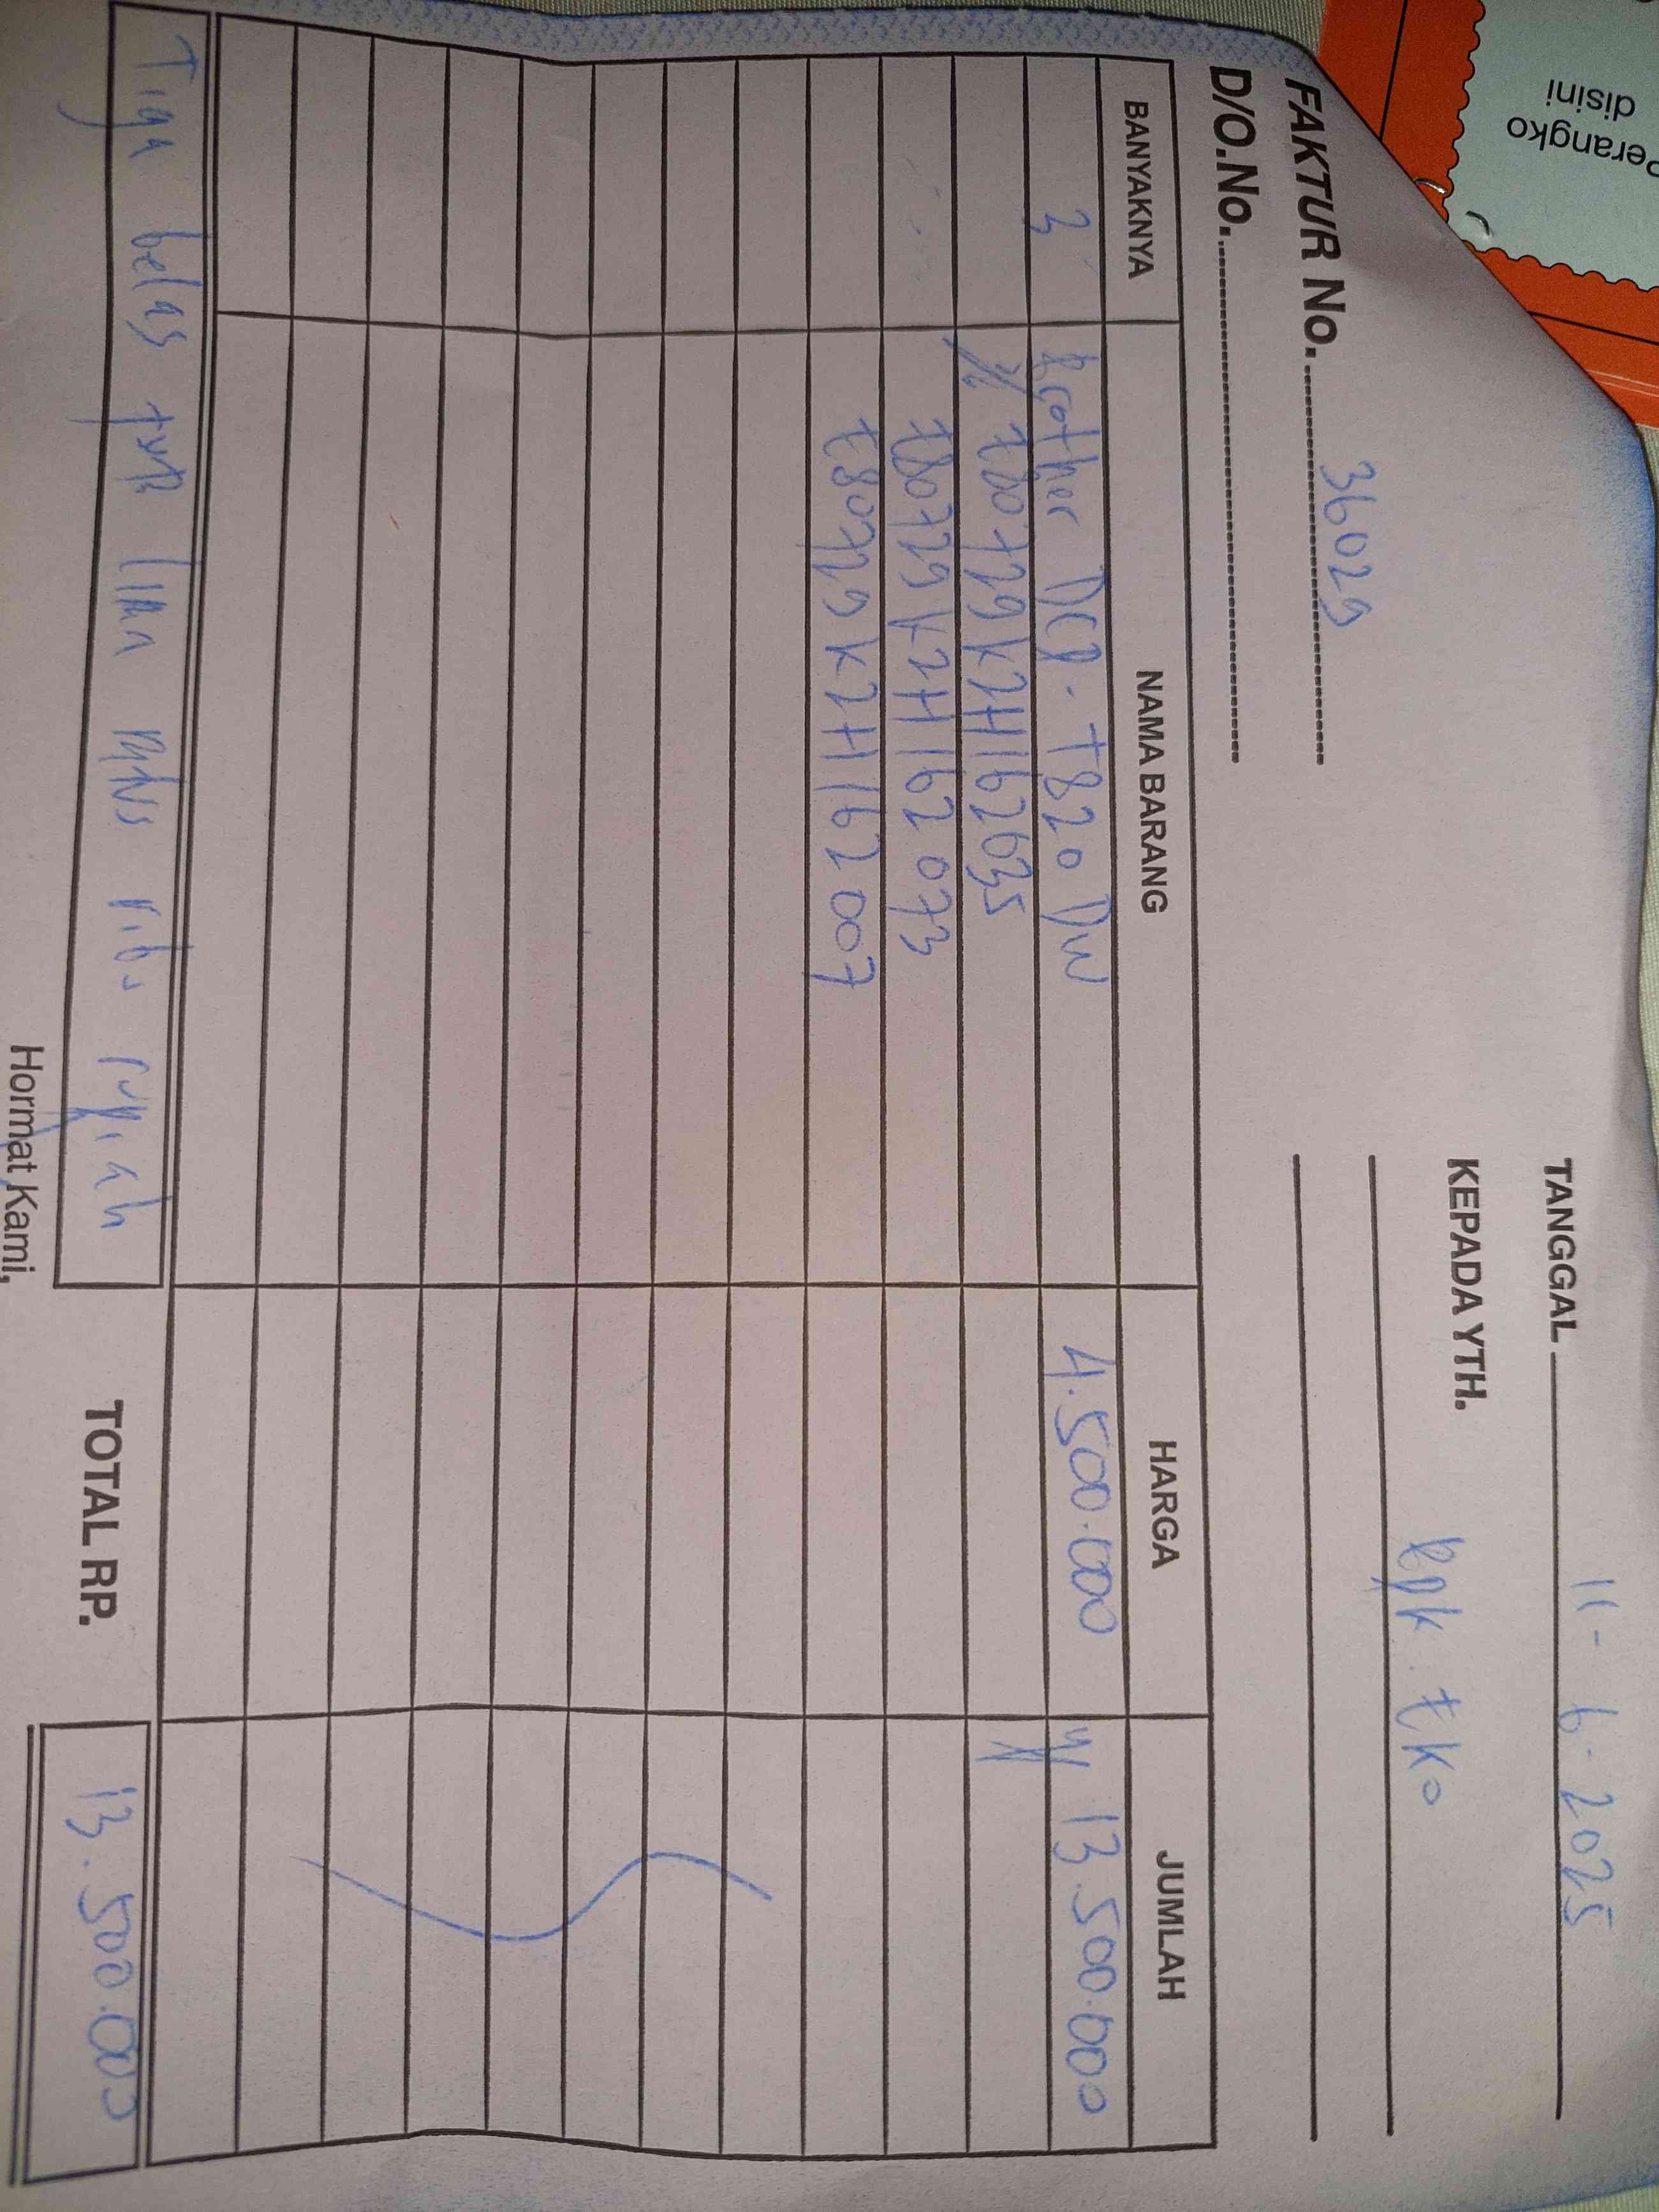 Perangko
disini
TANGGAL 11-6-2025
KEPADA YTH.
Bpk. EKo
FAKTUR No. 36029
D/O.No.
BANYAKNYA NAMA BARANG HARGA JUMLAH
3 Brother DCP-T820DW 4.500.000 13.500.000
E80729K2H162035
E80729K2H162073
E80729K2H162007
Tiga belas juta lima ratus ribu rupiah
TOTAL RP. 13.500.000
Hormat Kami,